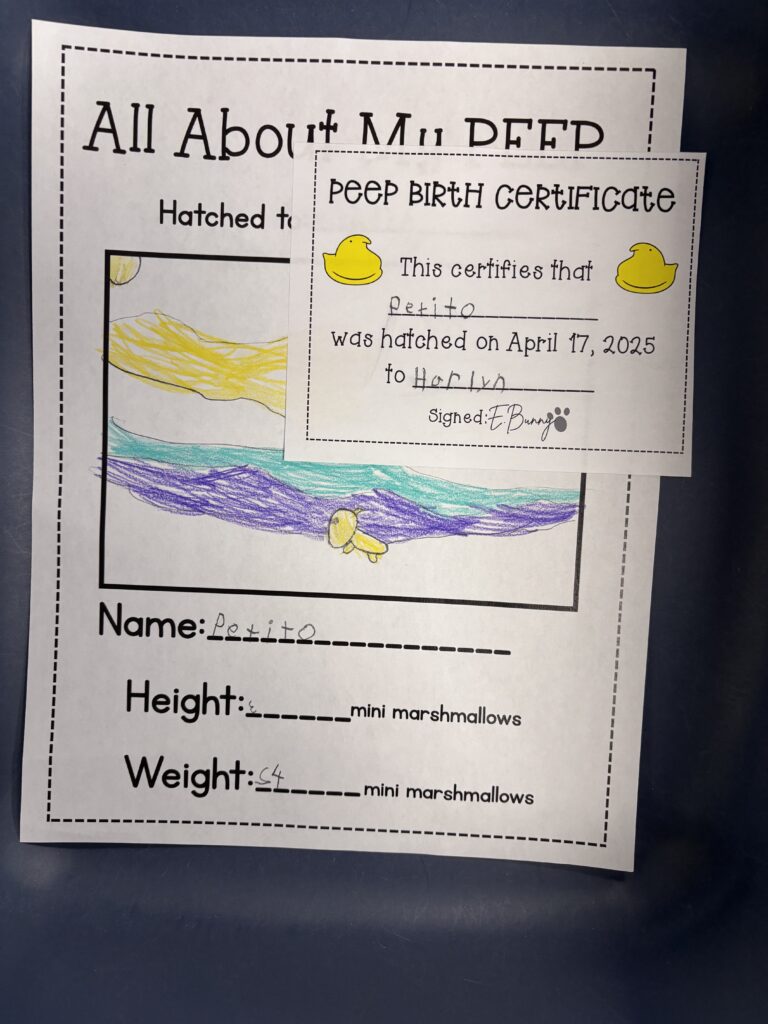 All About My PEEP
Hatched to
PEEP BIRTH CERTIFICATE
This certifies that
Petito
was hatched on April 17, 2025
to Harlyn
Signed: E. Bunny
Name: Petito
Height: mini marshmallows
Weight: 54 mini marshmallows